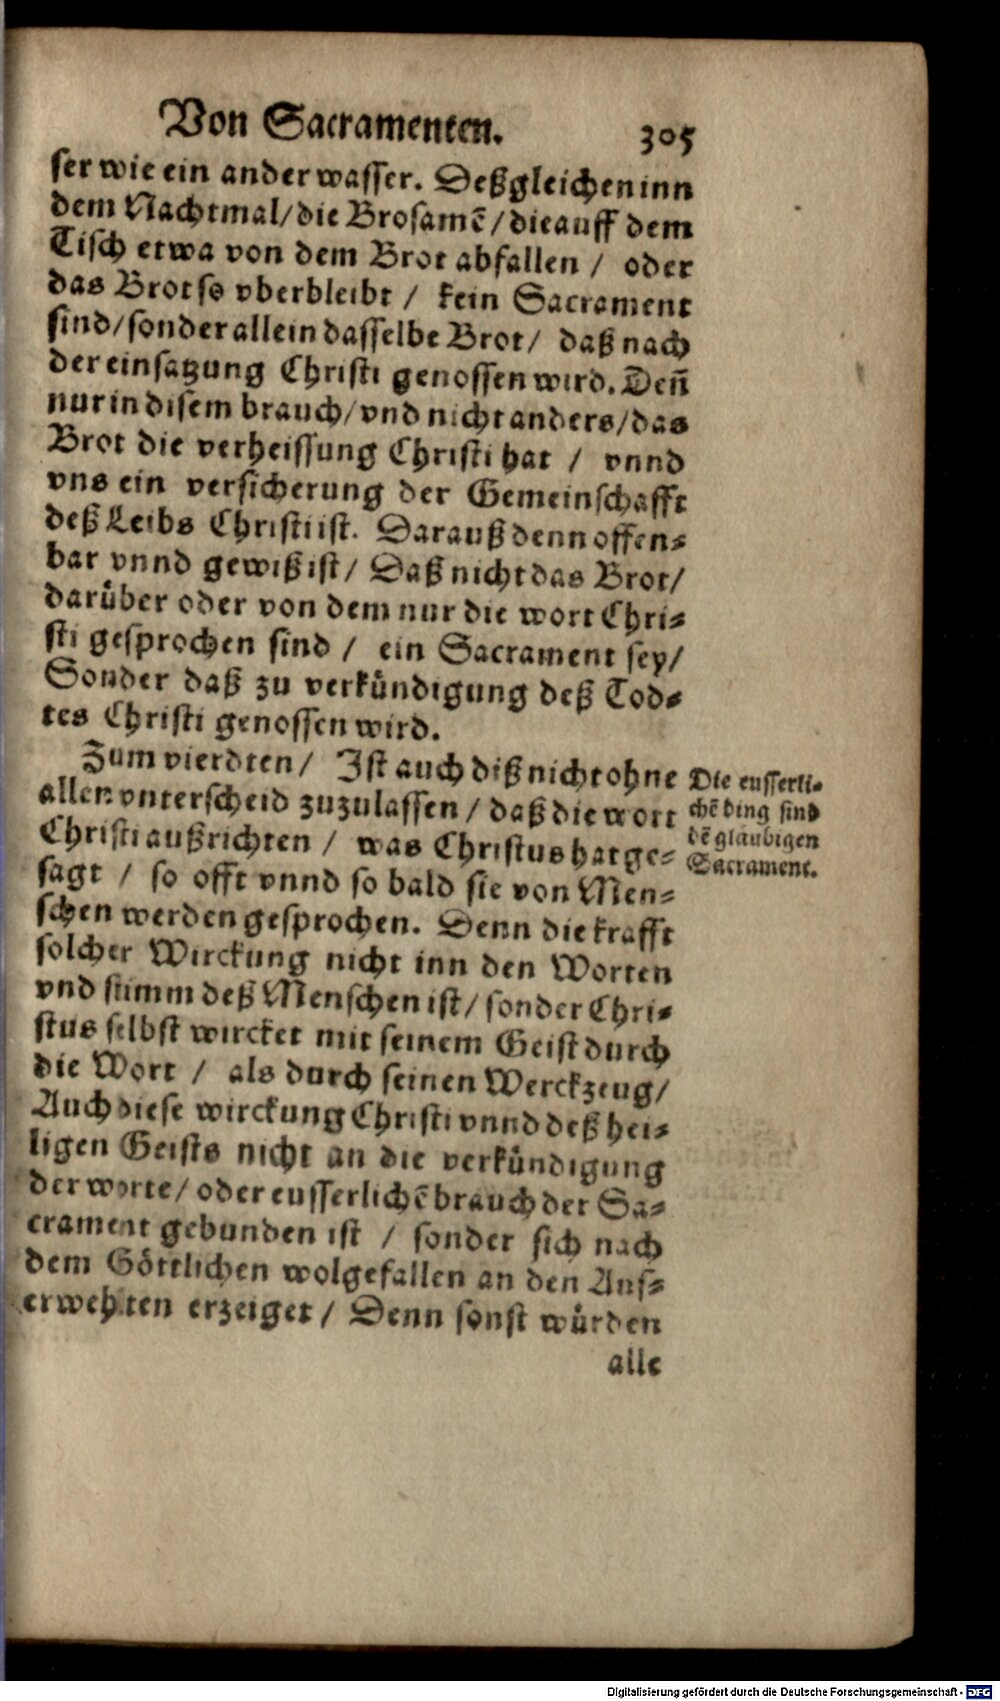 Von Sacramenten. 305
ser wie ein ander wasser. Deßgleichen inn
dem Nachtmal/die Brosamē/die auff dem
Tisch etwa von dem Brot abfallen / oder
das Brot so vberbleibt / kein Sacrament
sind/sonder allein dasselbe Brot/ daß nach
der einsatzung Christi genossen wird. Deñ
nur in disem brauch/vnd nicht anders/das
Brot die verheissung Christi hat / vnnd
vns ein versicherung der Gemeinschafft
deß Leibs Christi ist. Darauß denn offen-
bar vnnd gewiß ist/ Daß nicht das Brot/
darüber oder von dem nur die wort Chri-
sti gesprochen sind / ein Sacrament sey/
Sonder daß zu verkündigung deß Tod-
tes Christi genossen wird.
Zum vierdten/ Ist auch diß nicht ohne
allen vnterscheid zuzulassen / daß die wort
Christi außrichten / was Christus hat ge-
sagt / so offt vnnd so bald sie von Men-
schen werden gesprochen. Denn die krafft
solcher Wirckung nicht inn den Worten
vnd stimm deß Menschen ist/ sonder Chri-
stus selbst wircket mit seinem Geist durch
die Wort / als durch seinen Werckzeug/
Auch diese wirckung Christi vnnd deß hei-
ligen Geists nicht an die verkündigung
der worte/ oder eusserlichē brauch der Sa-
crament gebunden ist / sonder sich nach
dem Göttlichen wolgefallen an den Aus-
erwehlten erzeiget / Denn sonst würden
alle
Die eusserli-
chē ding sind
dē gläubigen
Sacrament.
Digitalisierung gefördert durch die Deutsche Forschungsgemeinschaft - DFG